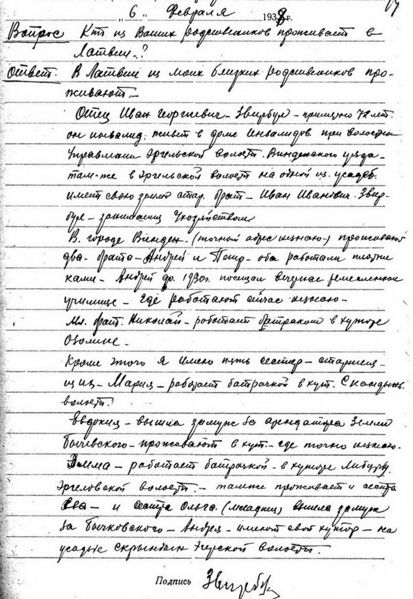 "6" Февраля 1938 г.
Вопрос Кто из Ваших родственников проживает в
Латвии.?
Ответ. В Латвии из моих близких родственников про-
живают –
Отец Иван Георгиевич – Звирбул – примерно 72 лет.
он инвалид. живет в доме инвалидов при волостном
управлении Эргельской волости. Виндавского уезда
там-же в Эргельской волости на одной из усадеб
имеет свою землю стар. брат – Иван Иванович – Звир-
бул – занимаясь хозяйством
В. городе Винден – (точный адрес незнаю –) проживают
два – брата – Андрей и оба работали плотни
ками – Андрей до 1930г. посещал вечернее ремесленное
училище – где работают сейчас незнаю –
Мл. брат. Николай – работает батраком в хуторе
Озолине –
Кроме этого я имею пять сестер – старшая
из них – Мария – работает батрачкой в хут.
волости.
Евдокия – вышла замуж за арендатора земли
– проживают в хут. – где точно незнаю.
Эмма – работает батрачкой – в хуторе
Эргельской волости – там же проживает и сестра
Ева – и сестра Ольга (младшая) вышла замуж
за Бычковского – Андрея – имеют свой хутор – на
усадьбе волости.
Подпись Звирбул